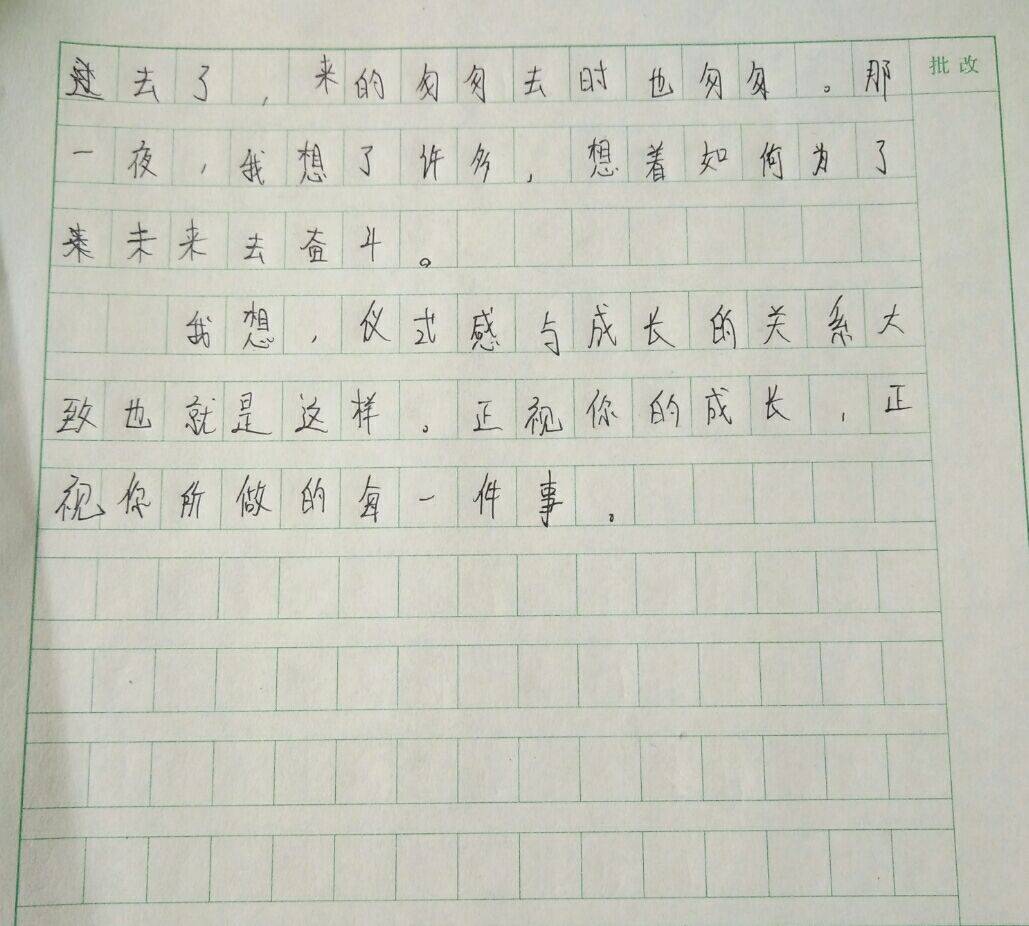 过去了,来的匆匆去时也匆匆。那
批改
一夜,我想了许多,想着如何为了
未来去奋斗。
我想,仪式感与成长的关系大
致也就是这样。正视你的成长,正
视你所做的每一件事。